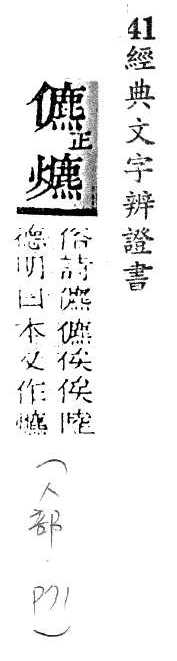 41經典文字辨證書
儦正爊
俗詩儦儦俟俟陸
德明曰本又作爊
(人部．P71)